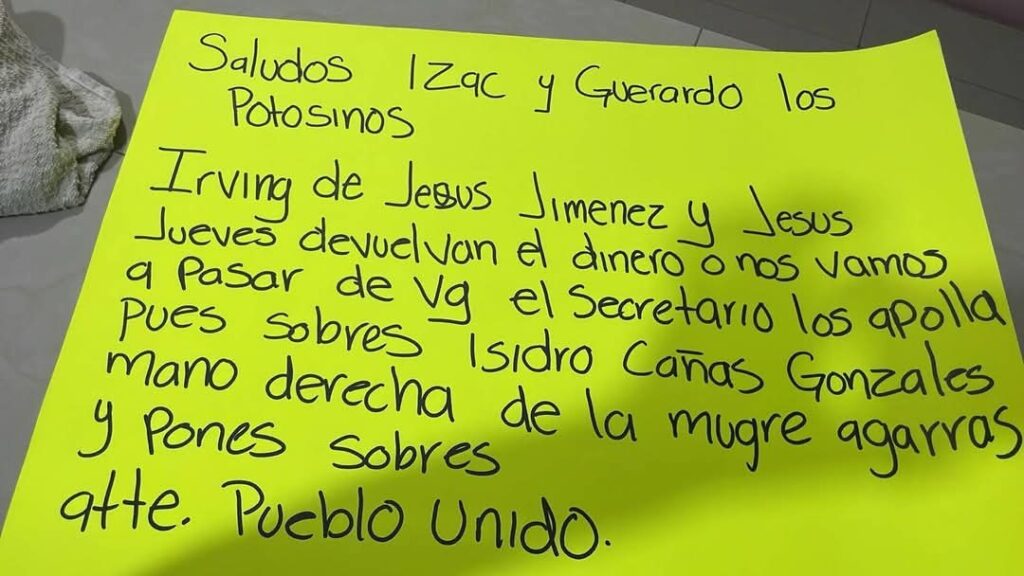 Saludos Izac y Guerardo los
Potosinos
Irving de Jesus Jimenez y Jesus
Jueves devuelvan el dinero o nos vamos
a pasar de Vg el Secretario los apolla
pues sobres Isidro Cañas Gonzales
mano derecha de la mugre agarras
y pones sobres
atte. Pueblo Unido.